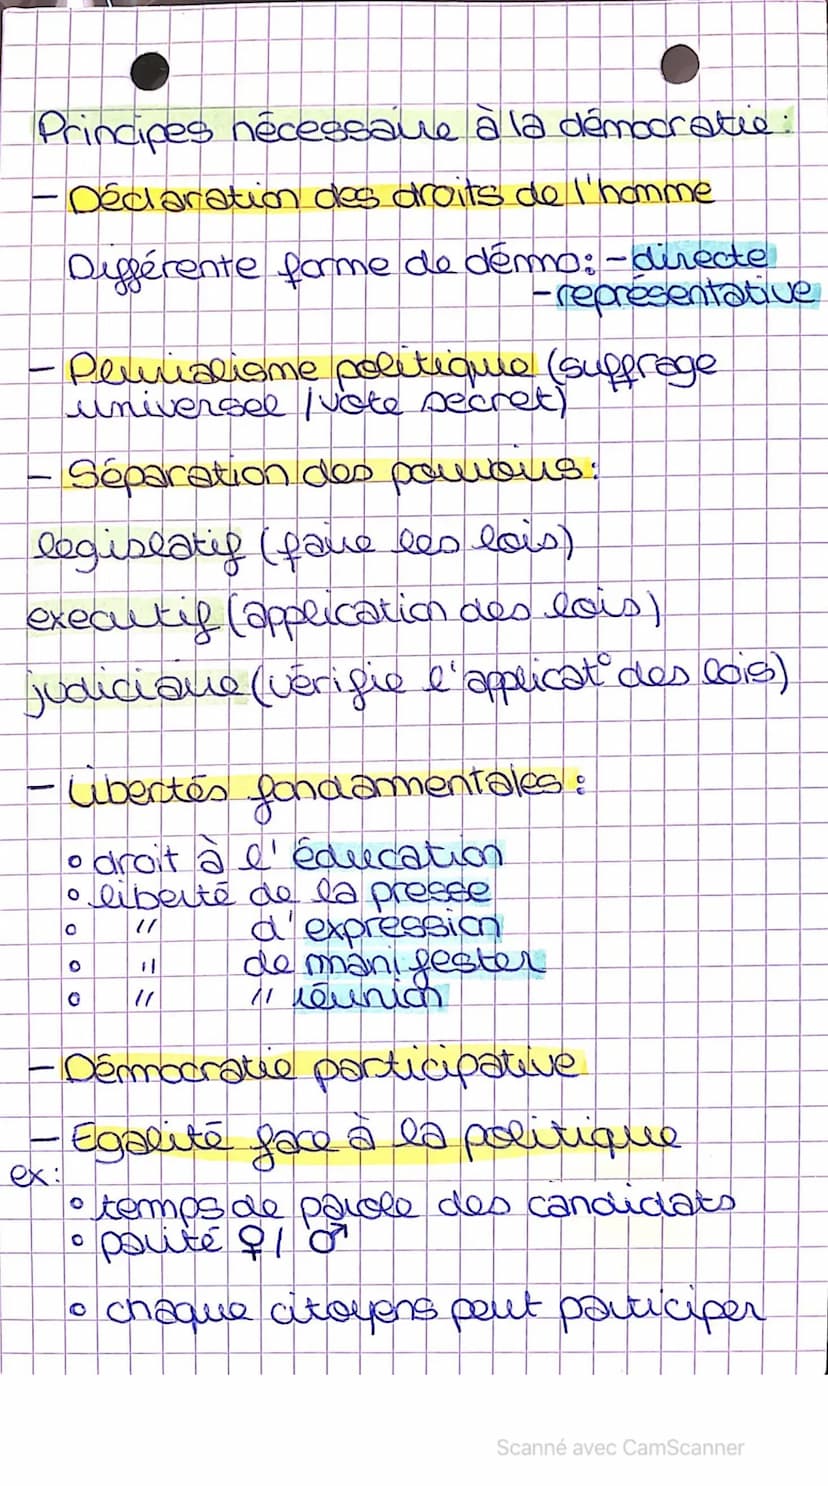 Principes nécessaire à la démocratie :
- Déclaration des droits de l'homme
Différente forme de démo : - directe
- représentative
- Pluralisme politique (suffrage
universel / vote secret)
- Séparation des pouvoirs :
legislatif (faire les lois)
executif (application des lois)
judiciaire (vérifie l'applicat° des lois)
- Libertés fondamentales :
° droit à l'éducation
° liberté de la presse
° " d'expression
° " de manifester
° " " réunion
- Démocratie participative
- Egalité face à la politique
ex :
° temps de parole des candidats
° parité ♀ / ♂
° chaque citoyens peut participer
Scanné avec CamScanner